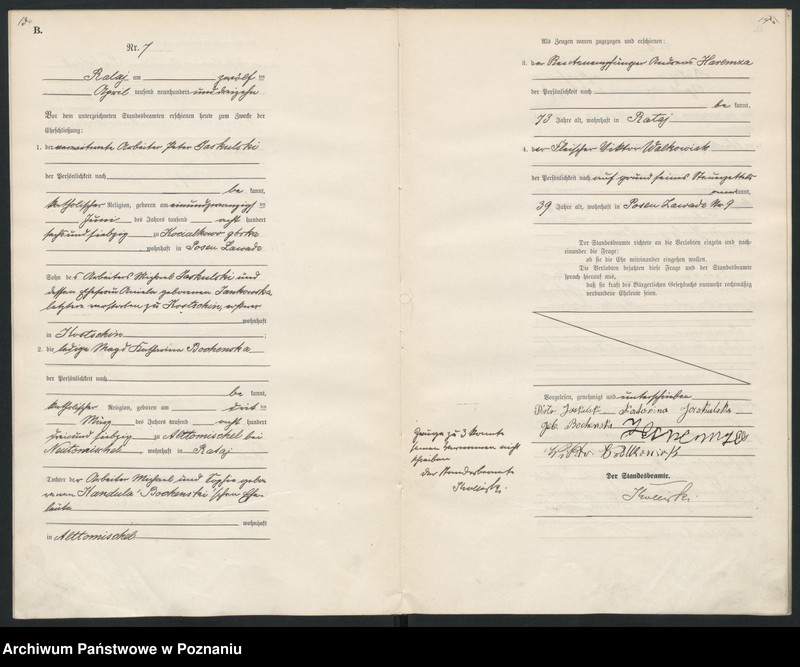 B.
Nr. 7
Rataj am zwölf ten
April tausend neunhundert und dreizehn
Vor dem unterzeichneten Standesbeamten erschienen heute zum Zwecke der
Eheschließung:
1. der Arbeiter Peter Jaskulski
der Persönlichkeit nach
be kannt,
katholischer Religion, geboren am einundzwanzigsten
Juni des Jahres tausend acht hundert
sechsundsiebzig zu
, wohnhaft in Posen Zawade
Sohn des Arbeiters Michael Jaskulski und
dessen Ehefrau Aniela geborenen Jankowska,
letztere verstorben zu Kostschin, ersterer
wohnhaft
in Kostschin ;
2. die ledige Magd Katharina Bochenska
der Persönlichkeit nach
be kannt,
katholischer Religion, geboren am ten
März des Jahres tausend acht hundert
dreiundsiebzig zu Alttomischel bei
Neutomischel wohnhaft in Rataj
Tochter der Arbeiter Michael und Sophie gebo
renen Handula Bochenski'schen Ehe-
leute
wohnhaft
in Alttomischel
Als Zeugen waren zugezogen und erschienen:
3. der Rentenempfänger Andreas Haremza
der Persönlichkeit nach
be kannt,
73 Jahre alt, wohnhaft in Rataj
4. der Fleischer Viktor Walkowiak
der Persönlichkeit nach auf grund seines Steuerzettels
kannt,
39 Jahre alt, wohnhaft in Posen Zawade No 9
Der Standesbeamte richtete an die Verlobten einzeln und nach-
einander die Frage:
ob sie die Ehe miteinander eingehen wollen.
Die Verlobten bejahten diese Frage und der Standesbeamte
sprach hierauf aus,
daß sie kraft des Bürgerlichen Gesetzbuchs nunmehr rechtmäßig
verbundene Eheleute seien.
Vorgelesen, genehmigt und unterschrieben
Piotr Jaskulski Katarina Jaskulska
geb. Bochenska
Wiktor Walkowiak
Zeuge zu 3 konnte
seinen Vornamen nicht
schreiben
der Standesbeamte
Der Standesbeamte.
Archiwum Państwowe w Poznaniu